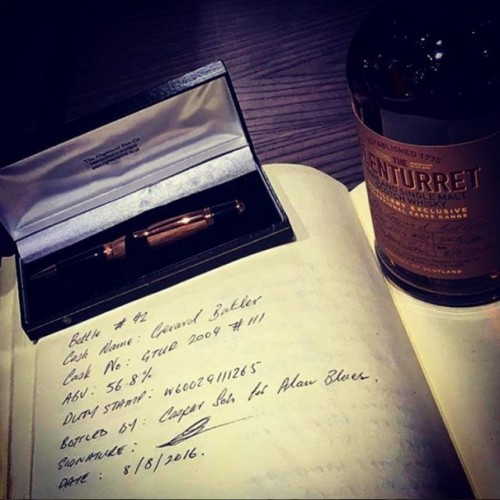 The Highland Pen Co
Bottle # 92
Cask Name: Gerard Butler
Cask No: GTUR 2004 # 111
ABV: 56.8%
DUTY STAMP: W60029111265
BOTTLED BY: Casper for Alan Blues.
SIGNATURE:
DATE: 8/8/2016.
ESTABLISHED 1775
THE
LENTURRET
SINGLE MALT
EXCLUSIVE
CASKS RANGE
OF SCOTLAND